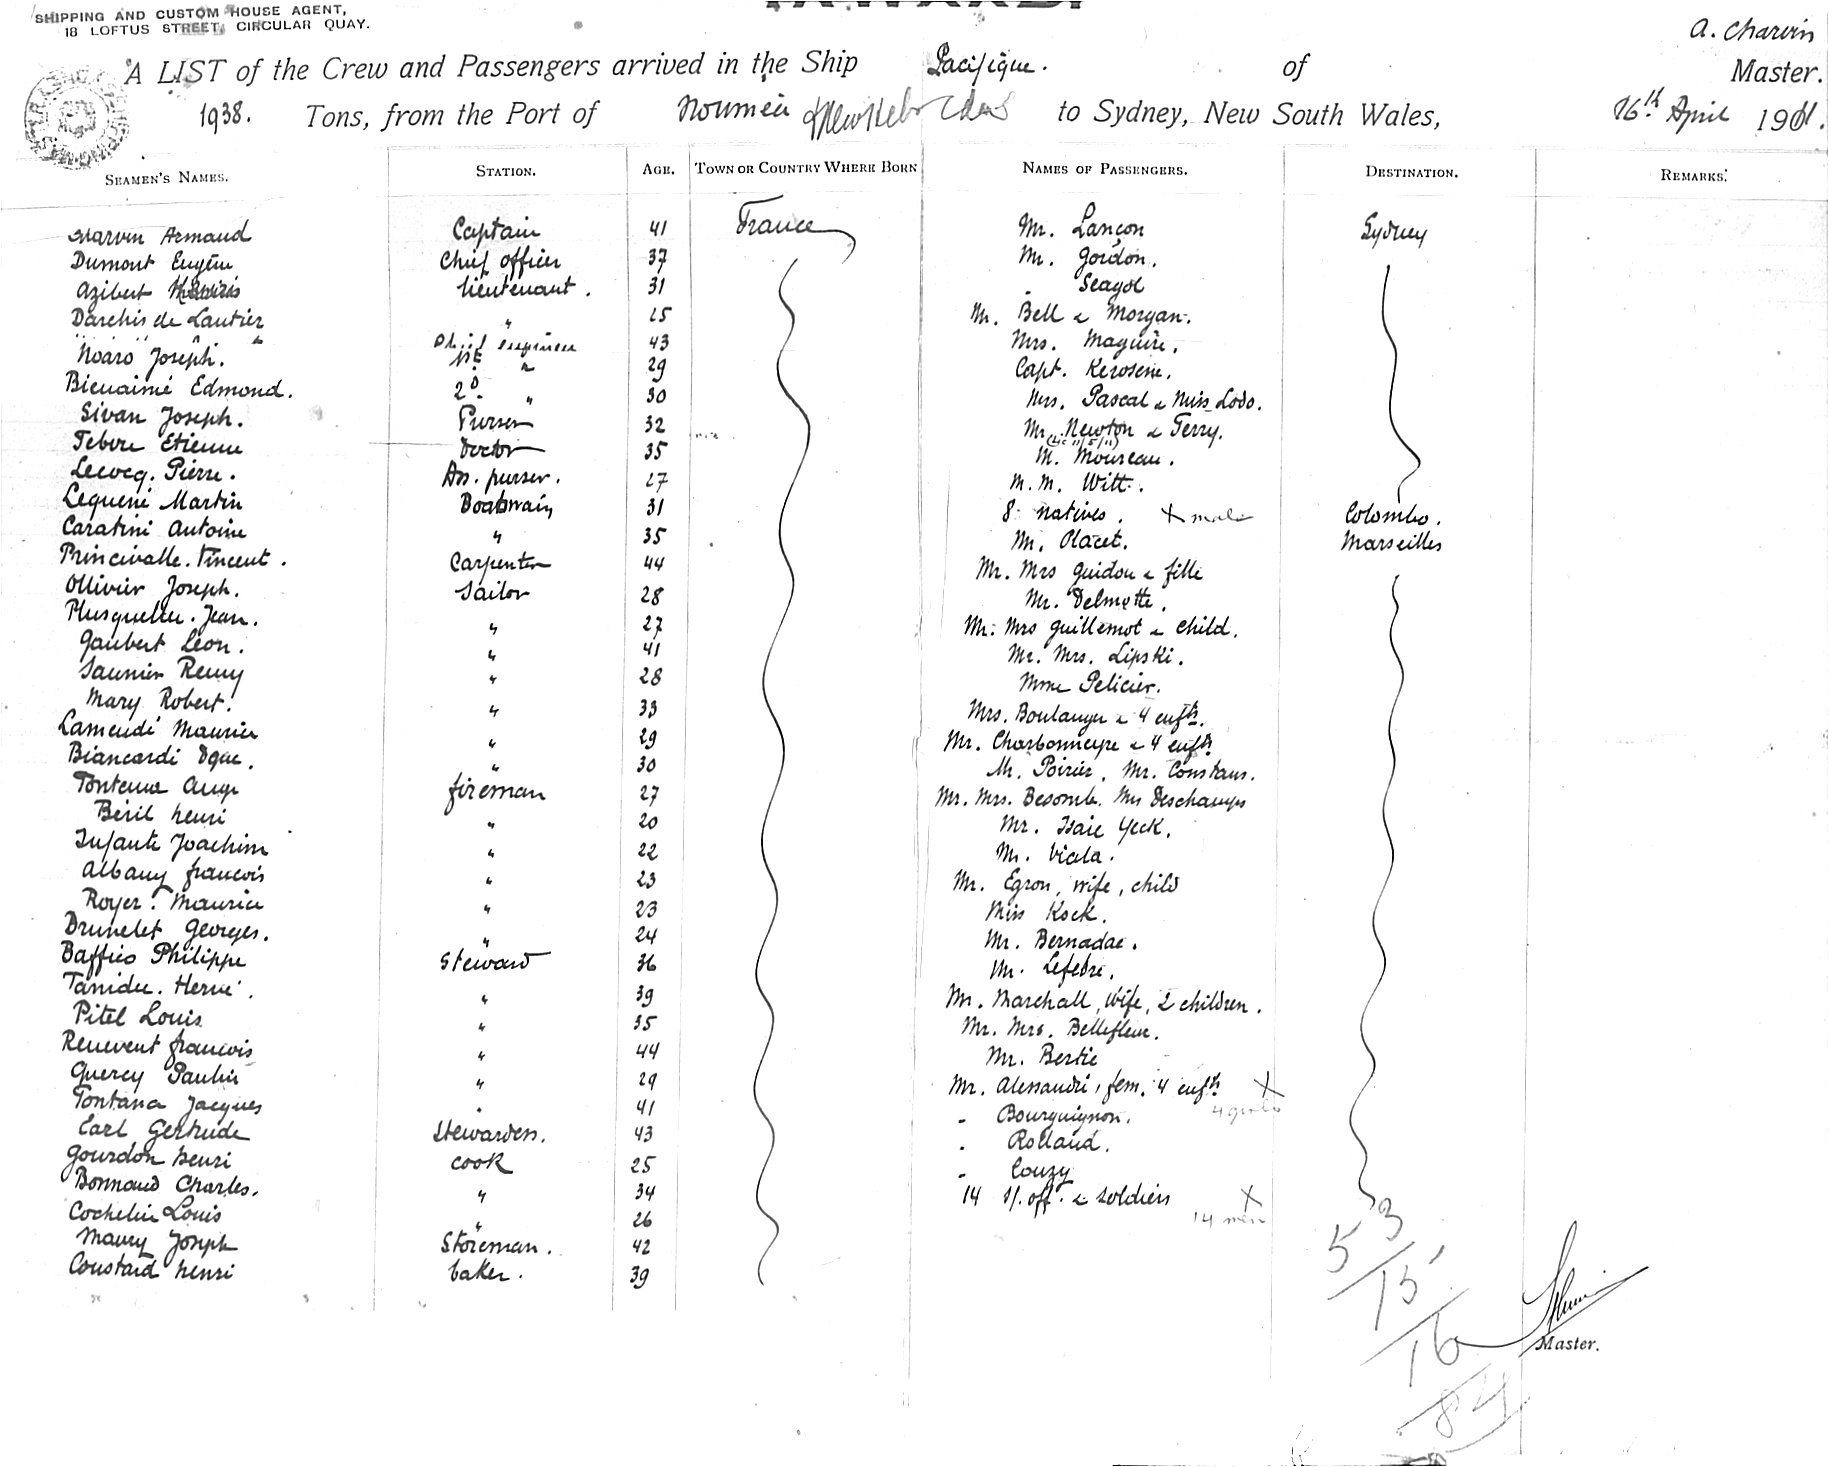 SHIPPING AND CUSTOM HOUSE AGENT,
18 LOFTUS STREET, CIRCULAR QUAY.
A. Charvin
A LIST of the Crew and Passengers arrived in the Ship Pacifique. of Master.
1938. Tons, from the Port of Nouméa & New Hebrides to Sydney, New South Wales, 16th April 1911.
SEAMEN'S NAMES. STATION. AGE. TOWN OR COUNTRY WHERE BORN NAMES OF PASSENGERS. DESTINATION. REMARKS.
Armand Captain 41 France Mr. Lançon Sydney
Dumont Eugène Chief officer 37 Mr. Gordon.
Azibert lieutenant. 31 Seagol
Darchis de Lautier " 25 M. Bell & Morgan.
" " " Chief engineer 43 Mrs. Maguire.
Noaro Joseph. " 29 Capt. Kerosene.
Bienaimé Edmond. 2d. " 30 Mrs. Pascal & Miss Lodo.
Sivan Joseph. Purser 32 Mr. Newton & Terry.
Etienne Doctor 35 M. Moureau.
Lecocq. Pierre. Ass. purser. 27 M. M. Witt.
Lequené Martin Boatswain 31 8 natives. X male Colombo.
Caratini Antoine " 35 Mr. Placet. Marseilles
Princivalle. Vincent. Carpenter 44 Mr. Mrs Guidou & fille
Ollivier Joseph. Sailor 28 Mr. Delmotte.
Plusquellec. Jean. " 27 Mr. Mrs Guillemot & child.
Gaubert Léon. " 41 Mr. Mrs. Lipski.
Saunier Remy " 28 Mme Pelicier.
Mary Robert. " 33 Mrs. Boulanger & 4 enfts.
Lamendé Maurice " 29 Mr. Charbonneyre & 4 enfts
Biancardi Dque. " 30 M. Poirier, Mr. Constans.
Fontena Ange fireman 27 Mr. Mrs. Besomb. Mrs Deschamps
Béril henri " 20 Mr. Isaïe Yeck.
Infante Joachim " 22 M. Viala.
Albany françois " 23 Mr. Egron, wife, child
Royer. Maurice " 23 Miss Kock.
Brunelet Georges. " 24 Mr. Bernadac.
Baffico Philippe Steward 36 Mr. Lefebre.
Tanidec. Hervé. " 39 Mr. Marchall, wife, 2 children.
Pitel Louis " 35 Mr. Mrs. Bellefleur.
Renevent françois " 44 Mr. Bertie
Quercy Paulin " 29 Mr. Alessandri, fem. 4 enfts X
Fontana Jacques " 41 - Bourguignon.
Earl Gertrude Stewardess. 43 - Rolland.
Gourdon henri cook 25 - Couzy
Bonnaud Charles. " 34 14 s/. off. & soldiers X
Cochelin Louis " 26 14 men
Maury Joseph Storeman. 42
Coustard henri baker. 39
53
15
16
84
Master.